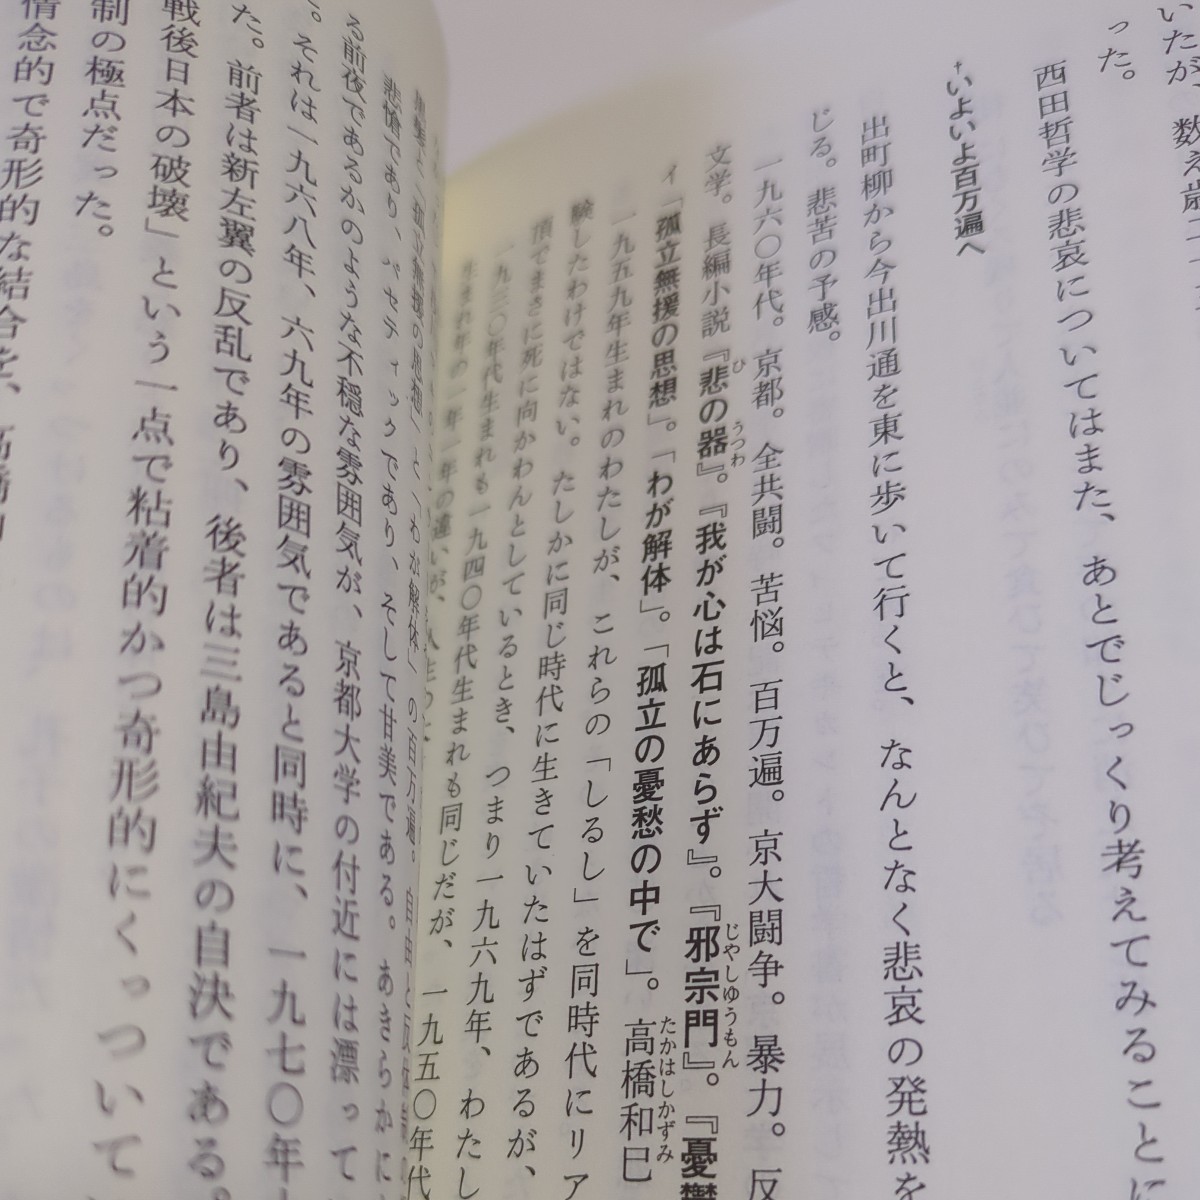 いたが、数え歳
った。
西田哲学の悲哀についてはまた、あとでじっくり考えてみることに
†いよいよ百万遍へ
出町柳から今出川通を東に歩いて行くと、なんとなく悲哀の発熱を
じる。悲苦の予感。
一九六〇年代。京都。全共闘。苦悩。百万遍。京大闘争。暴力。反
文学。長編小説『悲の器』。『我が心は石にあらず』。『邪宗門』。『憂鬱
ひ うつわ じやしゆうもん
イ「孤立無援の思想」。「わが解体」。「孤立の憂愁の中で」。高橋和巳
たかはしかずみ
一九五九年生まれのわたしが、これらの「しるし」を同時代にリア
験したわけではない。たしかに同じ時代に生きていたはずであるが、
頂でまさに死に向かわんとしているとき、つまり一九六九年、わたし
一九三〇年代生まれも一九四〇年代生まれも同じだが、一九五〇年代
生まれ年の一年一年の違いが、人生の
「孤立無援の思想」と「わが解体」の百万遍。自由と反
悲愴であり、パセティックであり、そして甘美である。あきらかに
る前夜であるかのような不穏な雰囲気が、京都大学の付近には漂って
。それは一九六八年、六九年の雰囲気であると同時に、一九七〇年
た。前者は新左翼の反乱であり、後者は三島由紀夫の自決である。
戦後日本の破壊」という一点で粘着的かつ奇形的にくっついて
制の極点だった。
情念的で奇形的な結合を、高橋和